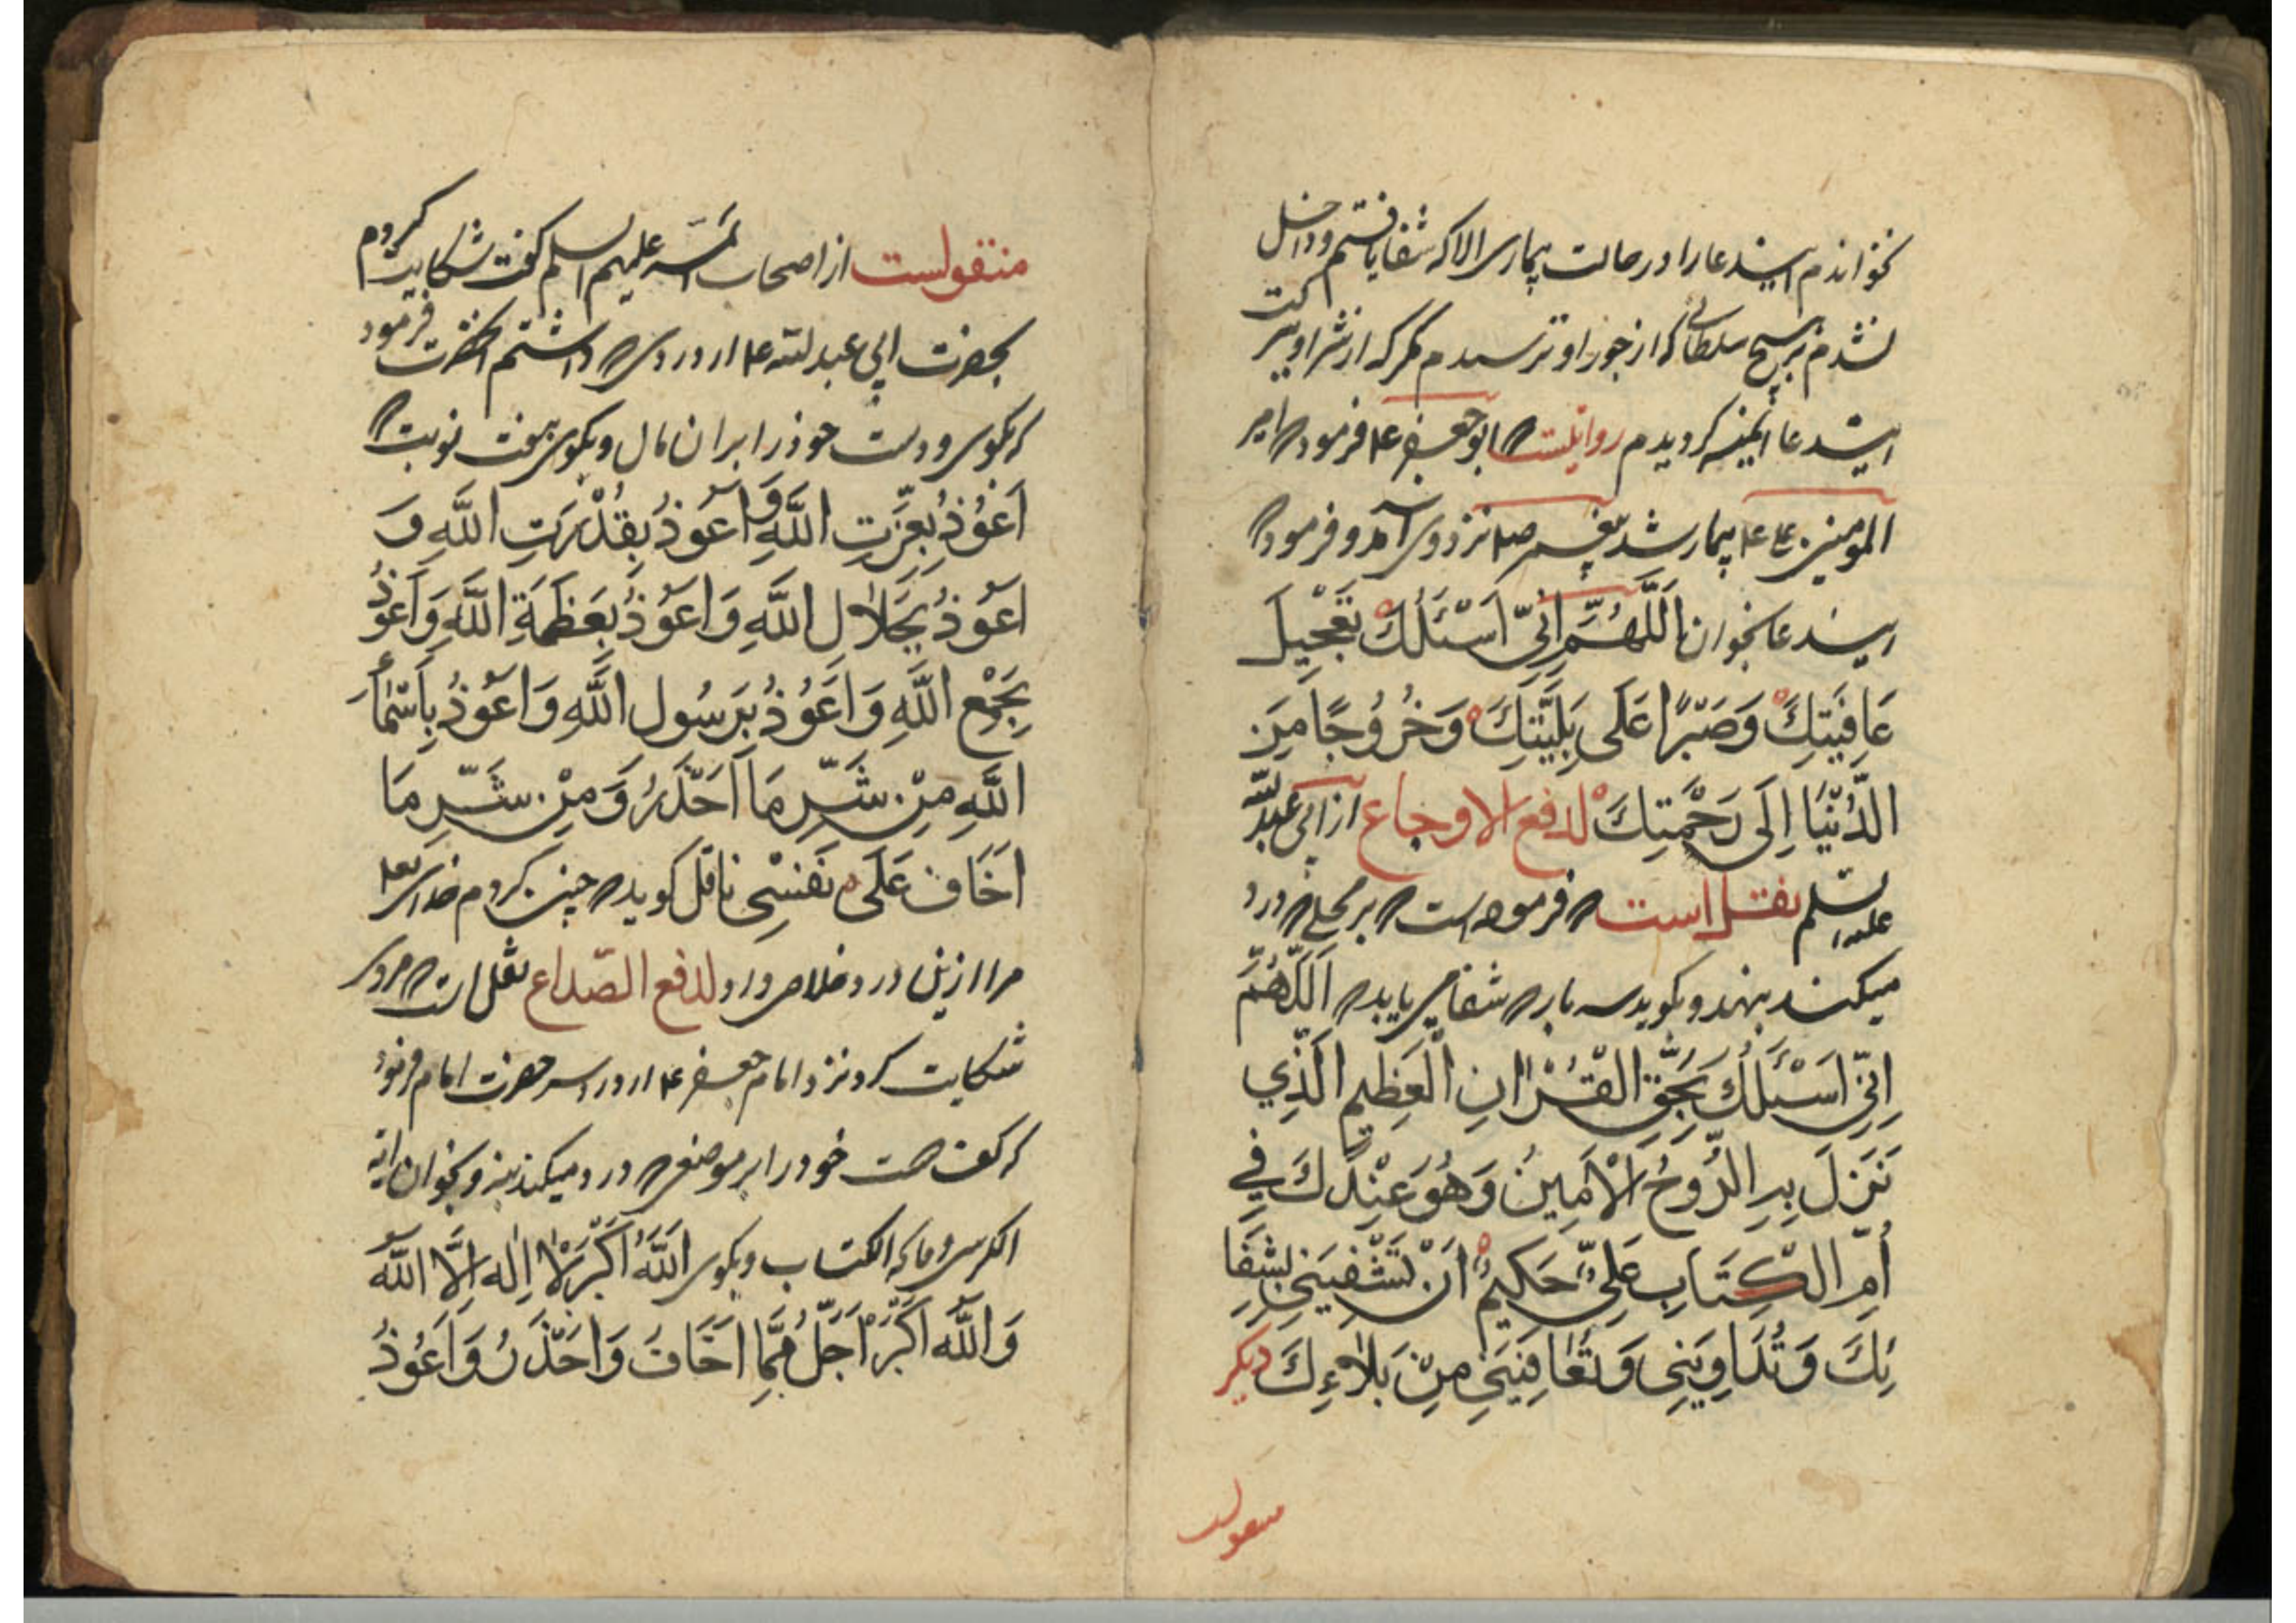 نخواندم این دعا را در حالت بیماری الا که شفا یافتم و داخل
نشدم بر هیچ سلطانی که از جور او ترسیدم مگر که از شر او ببرکت
این دعا ایمنه کردیدم روایتست که ابو جعفر ع۴ فرمود که امیر
المومنین علی ع۴ بیمار شد پیغمبر ص۴ نزد وی آمد و فرمود که
این دعا بخوان اَللَّهُمَّ اِنِّی اَسْئَلُكَ تَعْجِیلَ
عَافِیَتِكَ وَصَبْرًا عَلَی بَلِیَّتِكَ وَخُرُوجًا مِنَ
الدُّنْیَا اِلَی رَحْمَتِكَ لدفع الاوجاع از ابی عبد الله
علیه السلم نقل است که فرموده است که بر محلی که درد
میکند بنهد و بکوید سه بار که شفا می یابد که اَللَّهُمَّ
اِنِّی اَسْئَلُكَ بِحَقِّ الْقُرْانِ الْعَظِیمِ الَّذِي
نَزَلَ بِهِ الرُّوحُ الْاَمِینُ وَهُوَ عِنْدَكَ فِي
اُمِّ الْكِتَابِ عَلِیٌّ حَكِیمٌ اَنْ تَشْفِیَنِی بِشِفَا
ئِكَ وَتُدَاوِیَنِی وَتُعَافِیَنِی مِنْ بَلاءِكَ دیکر
منقولست
منقولست از اصحاب ائمه علیهم السلم کفت شکایت کردم
بحضرت ابی عبد الله ع۴ از دردی که داشتم آنحضرت فرمود
که بکوی و دست خوذ را بران مال و بکوی هفت نوبت که
اَعُوْذُ بِعِزَّتِ اللَّهِ وَ اَعُوذُ بِقُدْرَتِ اللَّهِ وَ
اَعُوذُ بِجَلاٰلِ اللَّهِ وَاَعُوذُ بِعَظَمَةِ اللَّهِ وَاَعُوذُ
بِجَمْعِ اللَّهِ وَاَعُوْذُ بِرَسُولِ اللَّهِ وَاَعُوذُ بِاَسْمَاءِ
اللَّهِ مِنْ شَرِّ مَا اَحْذَرُ وَ مِنْ شَرِّ مَا
اَخَافُ عَلَی نَفْسِی ناقل کوید که چنین کردم خدای تعا
مرا ازین درد خلاص داد لدفع الصّداع نقل است که مردی
شکایت کرد نزد امام جعفر ع۴ از درد سر حضرت امام فرمود
که کف دست خود را بر موضعی که درد میکند بنه و بخوان ایة
الکرسی و فاتحه الکتاب و بکوی اَللَّهُ اَكْبَرُ لاٰ اِلٰهَ اِلَّا اللّٰهُ
وَاللّٰهُ اَكْبَرُ اَجَلُّ مِمَّا اَخَافُ وَاَحْذَرُ وَاَعُوذُ